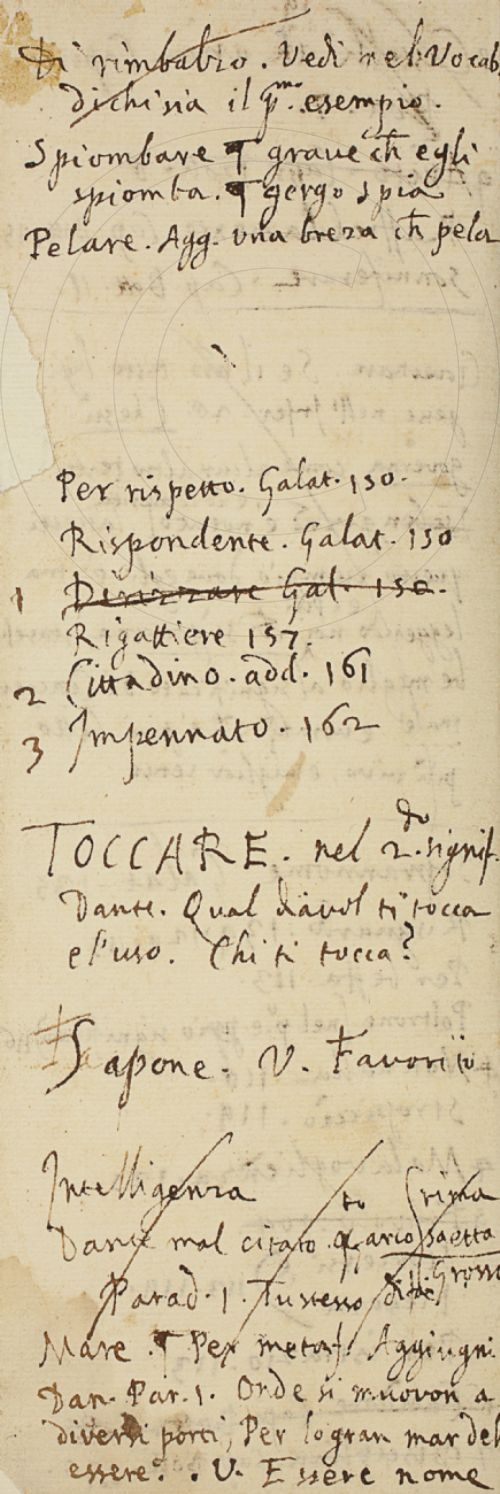 Di rimbalzo. Vedi nel Vocab.
dichisia il pmo. esempio.
Spiombare ¶ grave ch̄ egli
spiomba. ¶ gergo spia
Pelare. Agg. una breza ch̄ pela
Per rispetto. Galat. 130.
Rispondente. Galat. 130
1 Dirizzare Gal. 150.
Rigattiere 157.
2 Cittadino. add. 161
3 Impennato. 162
TOCCARE. nel 2.do signif.
Dante. Qual diavol ti tocca
e l'uso. Chi ti tocca?
Sapone. V. Favorito
Intelligenza
Dante mal citato rima
saetta
Parad. 1. Tu stesso Grosso
Mare. ¶ Per metaf. Aggiugni
Dan. Par. 1. Onde si muovon a
diversi porti, Per lo gran mar del
essere. V. Essere nome